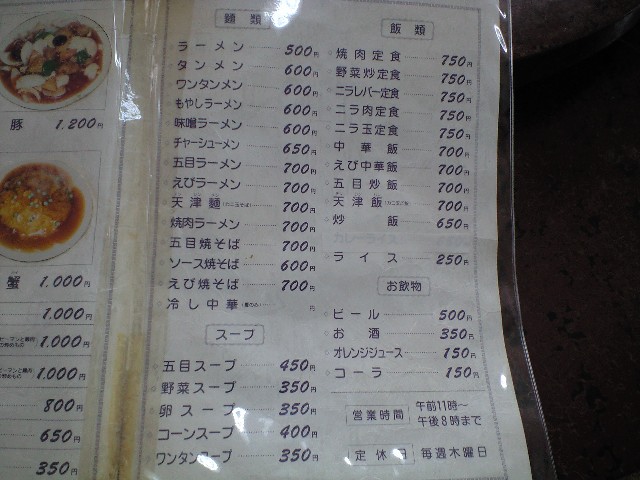 豚 1,200円
蟹 1,000円
1,000円
1,000円
1,000円
800円
650円
350円
麺類
ラーメン 500円
タンメン 600円
ワンタンメン 600円
もやしラーメン 600円
味噌ラーメン 600円
チャーシューメン 650円
五目ラーメン 700円
えびラーメン 700円
天津麺 700円
焼肉ラーメン 700円
五目焼そば 700円
ソース焼そば 600円
えび焼そば 700円
冷し中華 円
スープ
五目スープ 450円
野菜スープ 350円
卵スープ 350円
コーンスープ 400円
ワンタンスープ 350円
飯類
焼肉定食 750円
野菜炒定食 750円
ニラレバー定食 750円
ニラ肉定食 750円
ニラ玉定食 750円
中華飯 700円
えび中華飯 700円
五目炒飯 700円
天津飯 700円
炒飯 650円
ライス 250円
お飲物
ビール 500円
お酒 350円
オレンジジュース 150円
コーラ 150円
営業時間 午前11時〜
午後8時まで
定休日 毎週木曜日